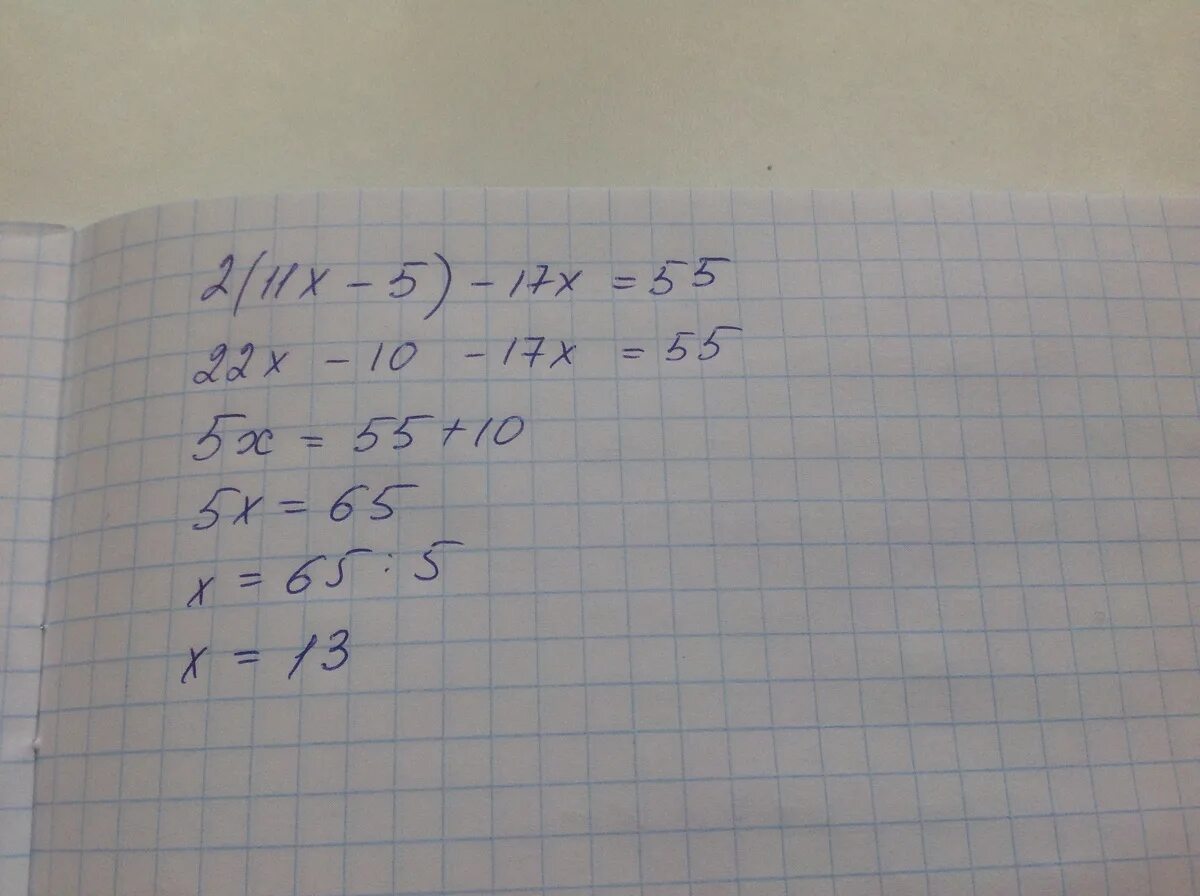 2(11x - 5) - 17x = 55
22x - 10 - 17x = 55
5x = 55 + 10
5x = 65
x = 65 : 5
x = 13